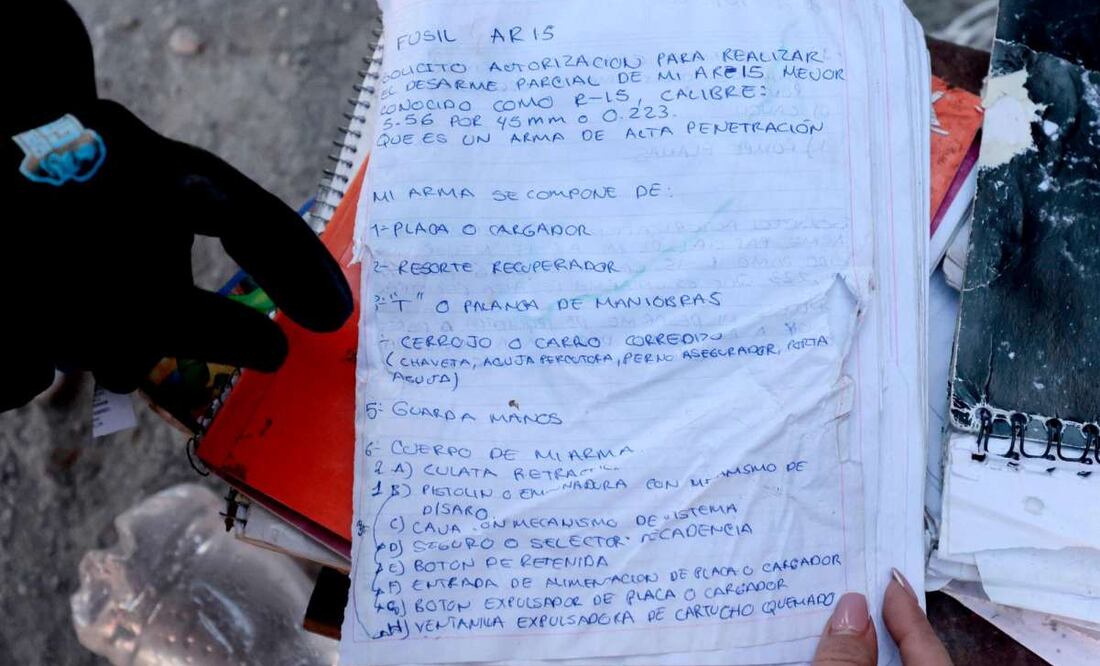 FUSIL AR15
SOLICITO AUTORIZACION PARA REALIZAR
EL DESARME PARCIAL DE MI AR-15 MEJOR
CONOCIDO COMO R-15, CALIBRE:
5.56 POR 45mm O 0.223.
QUE ES UN ARMA DE ALTA PENETRACIÓN
MI ARMA SE COMPONE DE:
1- PLACA O CARGADOR
2- RESORTE RECUPERADOR
3- "T" O PALANCA DE MANIOBRAS
CERROJO O CARRO CORREDIZO
(CHAVETA, AGUJA PERCUTORA, PERNO ASEGURADOR, PORTA
AGUJA)
5- GUARDA MANOS
6- CUERPO DE MI ARMA
A) CULATA
B) PISTOLIN O CON DE
DISARO
C) CAJA CON MECANISMO DE
D) SEGURO O SELECTOR
E) BOTON DE RETENIDA
F) ENTRADA DE ALIMENTACION DE PLACA O CARGADOR
G) BOTON EXPULSADOR DE PLACA O CARGADOR
H) VENTANILLA EXPULSADORA DE CARTUCHO QUEMADO